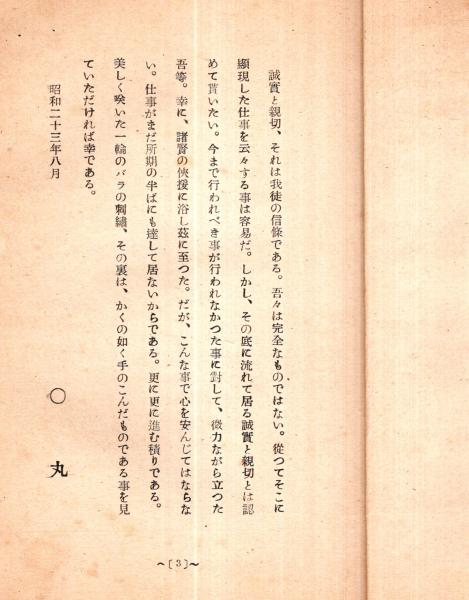 誠實と親切、それは我徒の信條である。吾々は完全なものではない。從つてそこに
顯現した仕事を云々する事は容易だ。しかし、その底に流れて居る誠實と親切とは認
めて貰いたい。今まで行われべき事が行われなかつた事に對して、微力ながら立つた
吾等。幸に、諸賢の俠援に浴し茲に至つた。だが、こんな事で心を安んじてはならな
い。仕事がまだ所期の半ばにも達して居ないからである。更に更に進む積りである。
美しく咲いた一輪のバラの刺繡、その裏は、かくの如く手のこんだものである事を見
ていただければ幸である。
昭和二十三年八月
〇丸
～〔3〕～